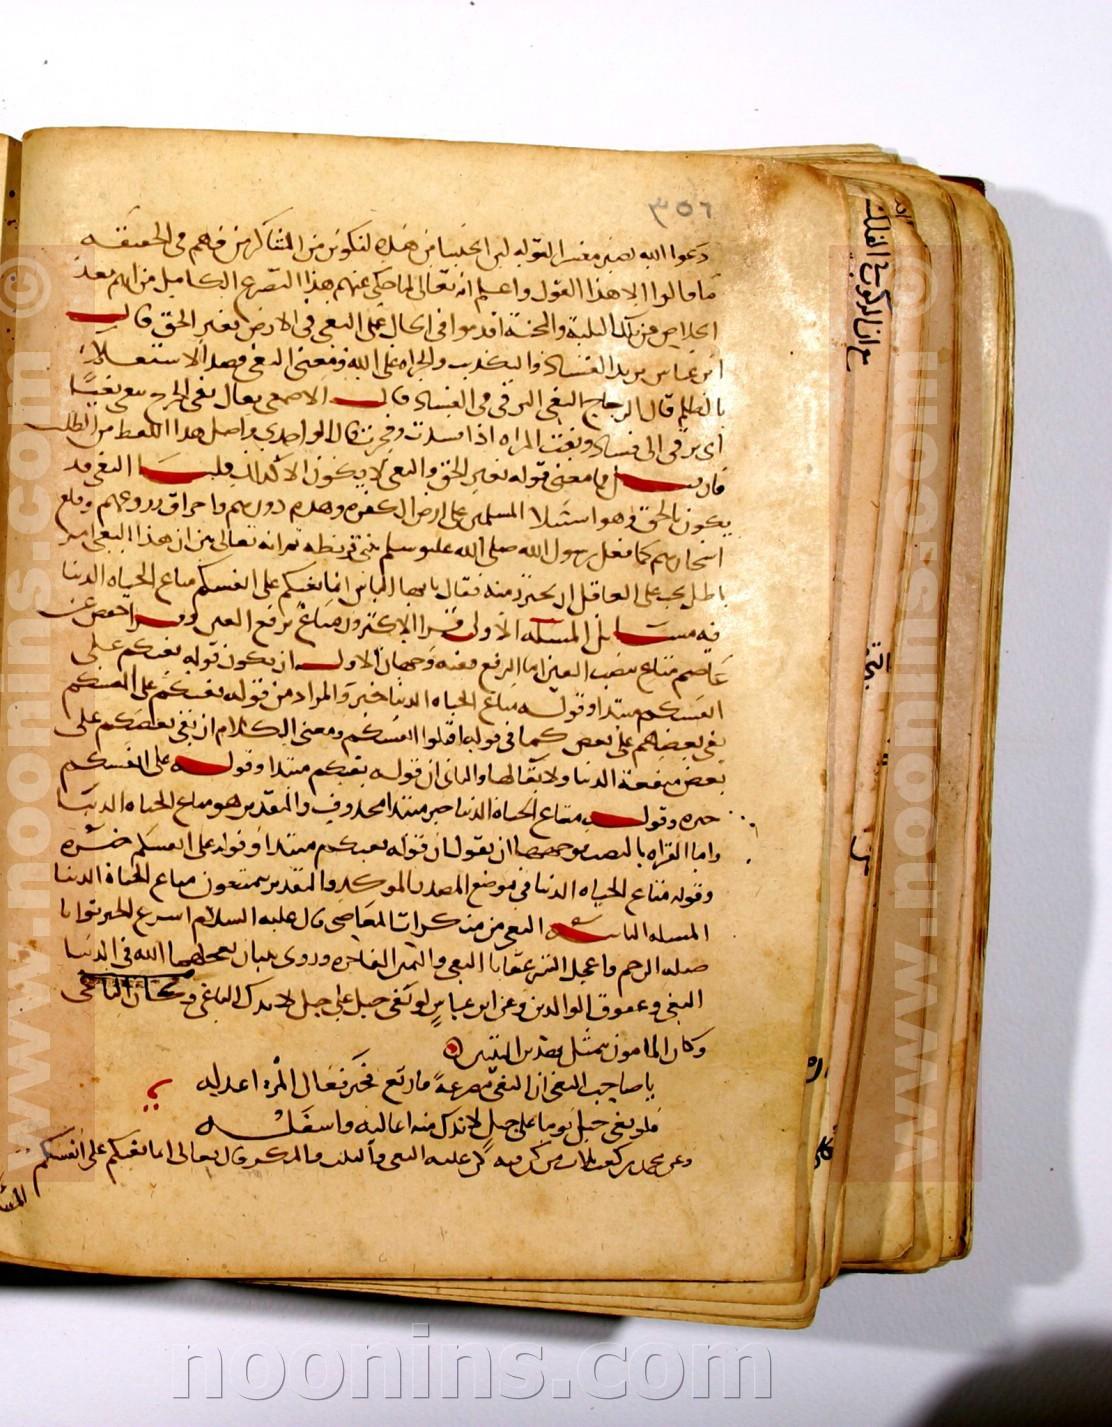 ٣٥٦
دعوا الله بصير مفسرا لقوله لئن انجيتنا من هذه لنكونن من الشاكرين فهم في الحقيقة
ما قالوا الا هذا القول واعلم انه تعالى لما حكى عنهم هذا التضرع الكامل بين انهم بعد
الخلاص من تلك البلية والمحنة اقدموا في الحال على البغي في الارض بغير الحق قال
ابن عباس يريد الفساد والتكذيب والجراه على الله ومعنى البغي قصد الاستعلاء
بالظلم قال الزجاج البغي الترقي في الفساد قال الاصمعي يقال بغى الجرح يبغي بغيا
اى ترقى الى فساد وبغت المراه اذا فسدت وفجرت قال الواحدي واصل هذا اللفظ من الطلب
فان قيل فما معنى قوله بغير الحق والبغي لا يكون الا كذلك قلنا البغي قد
يكون بالحق وهو استيلا المسلمين على ارض الكفره وهدم دورهم واحراق زروعهم وقلع
اشجارهم كما فعل رسول الله صلى الله عليه وسلم ببني قريظه ثم انه تعالى بين ان هذا البغي امر
باطل يجب على العاقل ان يحترز منه فقال يا ايها الناس انما بغيكم على انفسكم متاع الحياه الدنيا
فيه مسائل المسئله الاولى قرا الاكثرون متاع برفع العين وقرا حفص عن
عاصم متاع بنصب العين اما الرفع ففيه وجهان الاول ان يكون قوله بغيكم على
انفسكم مبتدا وقوله متاع الحياه الدنيا خبر والمراد من قوله بغيكم على انفسكم
بغي بعضهم على بعض كما في قوله اقتلوا انفسكم ومعنى الكلام ان بغي بعضكم على
بعض منفعة الدنيا ولا بقا لها والثاني ان قوله بغيكم مبتدا وقوله على انفسكم
خبره وقوله متاع الحياة الدنيا خبر مبتدا محذوف والتقدير هو متاع الحياه الدنيا
واما القراه بالنصب فوجهها ان يقول ان قوله بغيكم مبتدا وقوله على انفسكم خبره
وقوله متاع الحياه الدنيا في موضع المصدر الموكد والتقدير تتمتعون متاع الحياة الدنيا
المسله الثانيه البغي من منكرات المعاصي قال عليه السلام اسرع الخير ثوابا
صله الرحم واعجل الشر عقابا البغي واليمين الفاجره وروى ثنتان يعجلهما الله في الدنيا
البغي وعقوق الوالدين وعن ابن عباس لو بغى جبل على جبل لاندك الباغي
وكان المامون يتمثل بهذين البيتين
يا صاحب البغي ان البغي مصرعة فاربع فخير فعال المرء اعدله
فلو بغى جبل يوما على جبل لاندك منه اعاليه واسفله
وعن محمد بن كعب ثلاث من كن فيه كن عليه البغي والنكث والمكر قال تعالى انما بغيكم على انفسكم